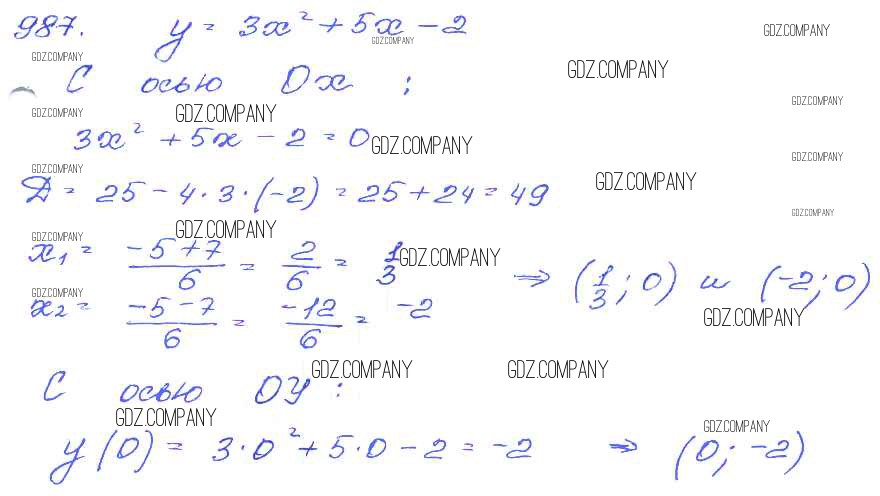 987. y = 3x² + 5x - 2
GDZ.COMPANY
GDZ.COMPANY
GDZ.COMPANY
С осью Ox :
GDZ.COMPANY
GDZ.COMPANY
GDZ.COMPANY
GDZ.COMPANY
3x² + 5x - 2 = 0
GDZ.COMPANY
GDZ.COMPANY
GDZ.COMPANY
Д = 25 - 4 · 3 · (-2) = 25 + 24 = 49
GDZ.COMPANY
GDZ.COMPANY
GDZ.COMPANY
GDZ.COMPANY
x₁ = (-5+7)/6 = 2/6 = 1/3
GDZ.COMPANY
⇒ (1/3 ; 0) и (-2; 0)
GDZ.COMPANY
x₂ = (-5-7)/6 = -12/6 = -2
GDZ.COMPANY
GDZ.COMPANY
GDZ.COMPANY
С осью ОУ :
GDZ.COMPANY
GDZ.COMPANY
y(0) = 3·0² + 5·0 - 2 = -2 ⇒ (0; -2)